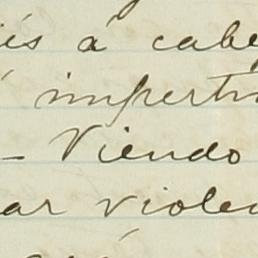 iés á cabe
impertin
- Viendo
ar violen